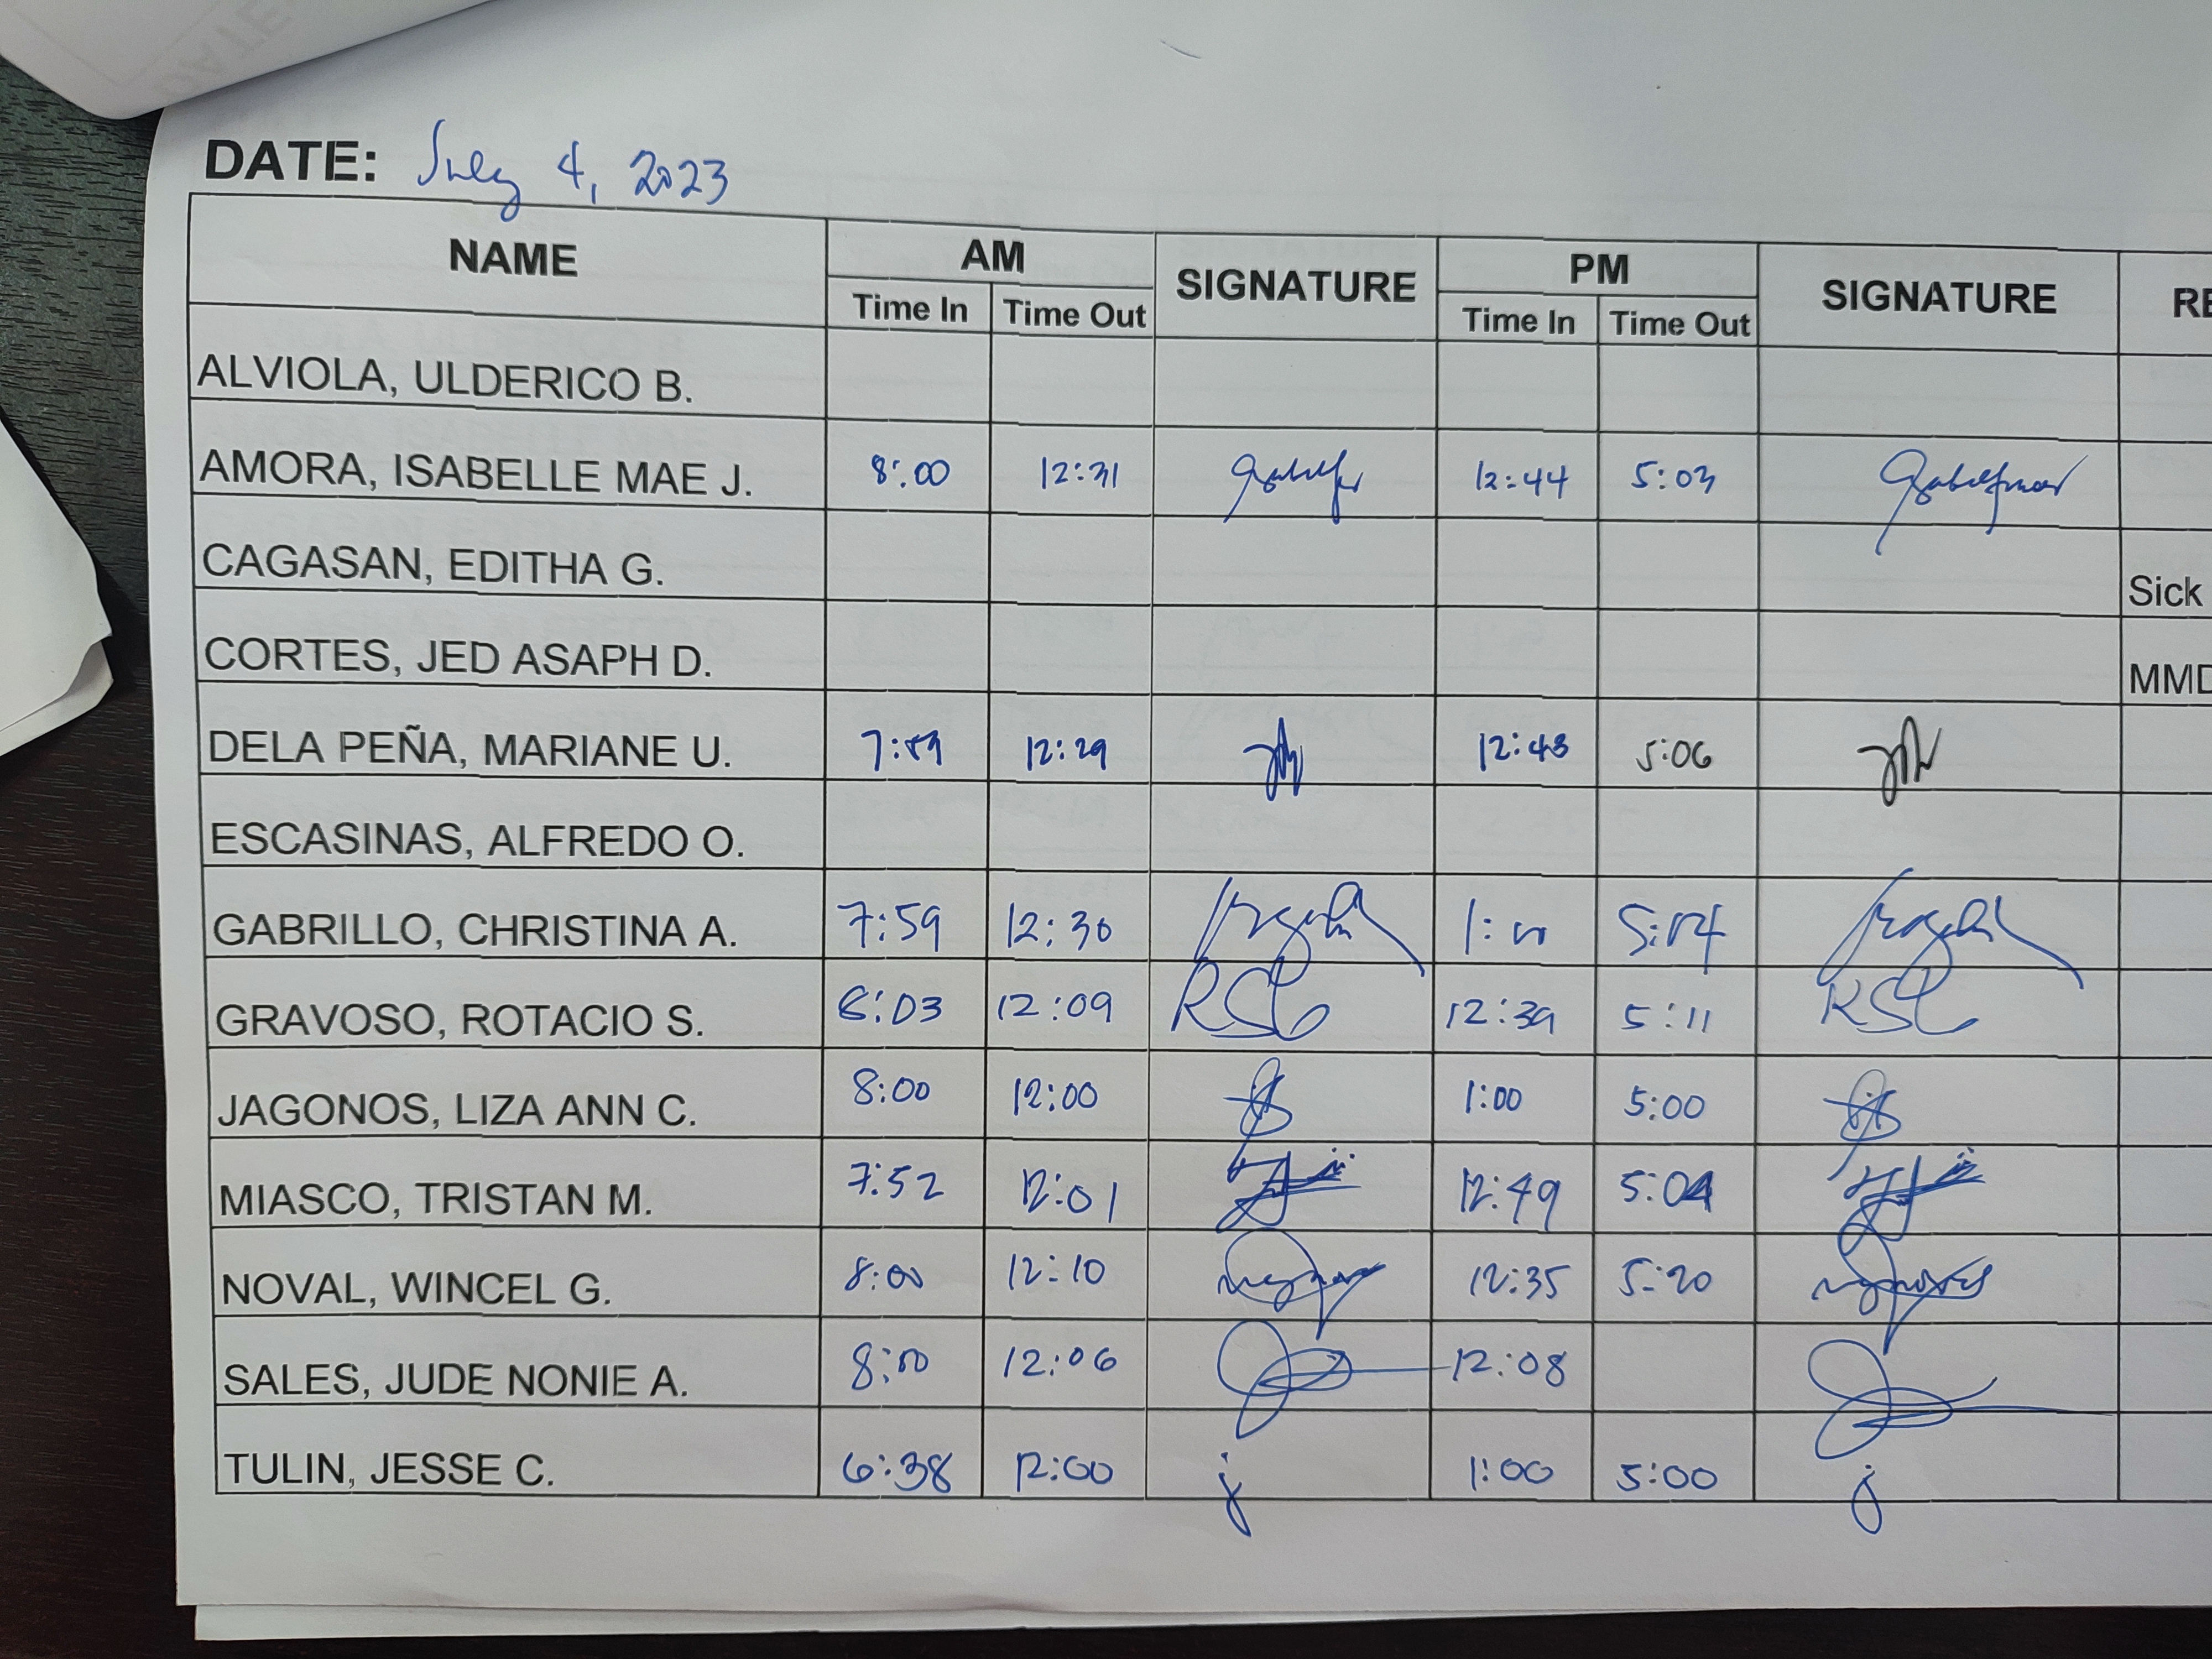 DATE: July 4, 2023
NAME AM SIGNATURE PM SIGNATURE RE
Time In Time Out Time In Time Out
ALVIOLA, ULDERICO B.
AMORA, ISABELLE MAE J. 8:00 12:31 12:44 5:03
CAGASAN, EDITHA G. Sick
CORTES, JED ASAPH D. MMD
DELA PEÑA, MARIANE U. 7:59 12:29 12:43 5:06
ESCASINAS, ALFREDO O.
GABRILLO, CHRISTINA A. 7:59 12:30 1:00 5:04
GRAVOSO, ROTACIO S. 8:03 12:09 RSG 12:39 5:11 RSG
JAGONOS, LIZA ANN C. 8:00 12:00 1:00 5:00
MIASCO, TRISTAN M. 7:52 12:01 12:49 5:04
NOVAL, WINCEL G. 8:00 12:10 12:35 5:20
SALES, JUDE NONIE A. 8:00 12:06 12:08
TULIN, JESSE C. 6:38 12:00 j 1:00 5:00 j